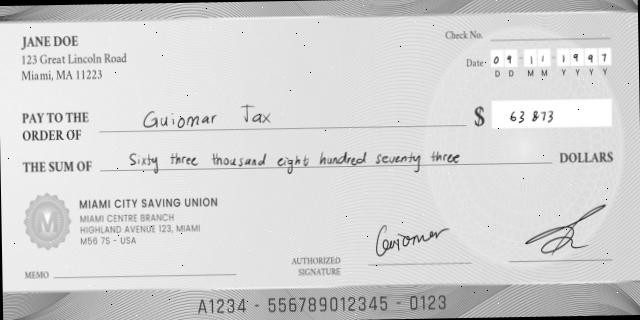 JANE DOE
123 Great Lincoln Road
Miami, MA 11223
Check No.
Date 09 11 1997
D D M M Y Y Y Y
PAY TO THE
ORDER OF Guiomar Tax
$ 63 873
THE SUM OF Sixty three thousand eight hundred seventy three DOLLARS
M
MIAMI CITY SAVING UNION
MIAMI CENTRE BRANCH
HIGHLAND AVENUE 123, MIAMI
M56 7S - USA
MEMO
AUTHORIZED
SIGNATURE
Guiomar
A1234 - 556789012345 - 0123